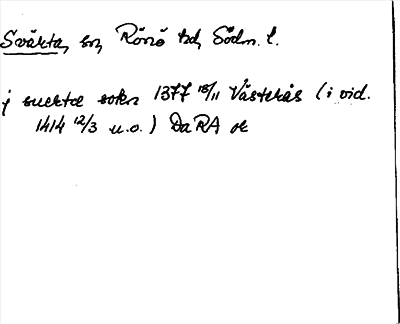 Svärta, sn, Rönö hd, Södm. l.
j suerta sokn 1377 18/11 Västerås (i vid.
1414 12/3 u.o.) DaRA or